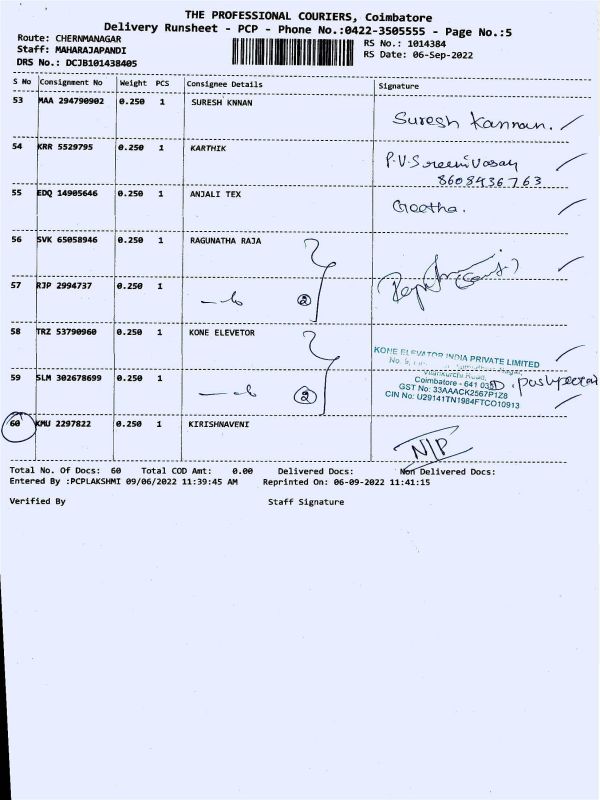 THE PROFESSIONAL COURIERS, Coimbatore
Delivery Runsheet - PCP - Phone No.:0422-3505555 - Page No.:5
Route: CHERNMANAGAR
Staff: MAHARAJAPANDI
DRS No.: DCJB101438405
RS No.: 1014384
RS Date: 06-Sep-2022
S No Consignment No Weight PCS Consignee Details Signature
53 MAA 294790902 0.250 1 SURESH KNNAN Suresh Kannan.
54 KRR 5529795 0.250 1 KARTHIK P.V.Sreenivasan
8608436763
55 EDQ 14905646 0.250 1 ANJALI TEX Geetha.
56 SVK 65058946 0.250 1 RAGUNATHA RAJA
57 RJP 2994737 0.250 1 2
58 TRZ 53790960 0.250 1 KONE ELEVETOR
KONE ELEVATOR INDIA PRIVATE LIMITED
Coimbatore - 641
GST No: 33AAACK2567P1Z8
CIN No: U29141TN1984FTC010913
59 SLM 302678699 0.250 1 2
60 KMU 2297822 0.250 1 KIRISHNAVENI N/P
Total No. Of Docs: 60 Total COD Amt: 0.00 Delivered Docs: Non Delivered Docs:
Entered By :PCPLAKSHMI 09/06/2022 11:39:45 AM Reprinted On: 06-09-2022 11:41:15
Verified By Staff Signature